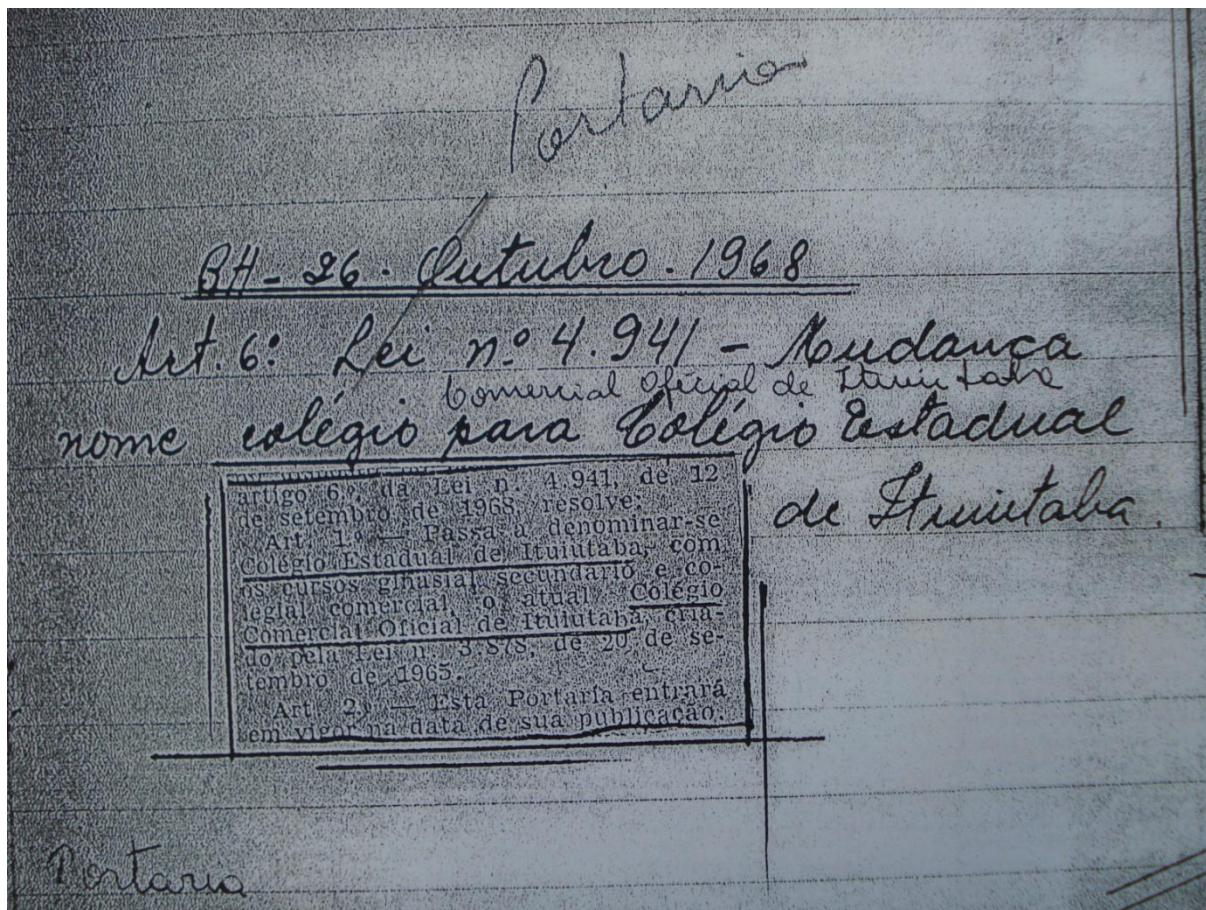 Portaria
BH - 26. Outubro. 1968
Art. 6º Lei nº 4.941 - Mudança
Comercial Oficial de Ituiutaba
nome colégio para Colégio Estadual
de Ituiutaba.
artigo 6º, da Lei n. 4.941, de 12
de setembro de 1968, resolve:
Art. 1º — Passa a denominar-se
Colégio Estadual de Ituiutaba, com
os cursos ginasial, secundário e co-
legial comercial, o atual Colégio
Comercial Oficial de Ituiutaba, cria-
do pela Lei n. 3.878, de 20 de se-
tembro de 1965.
Art. 2º — Esta Portaria entrará
em vigor na data de sua publicação.
Portaria